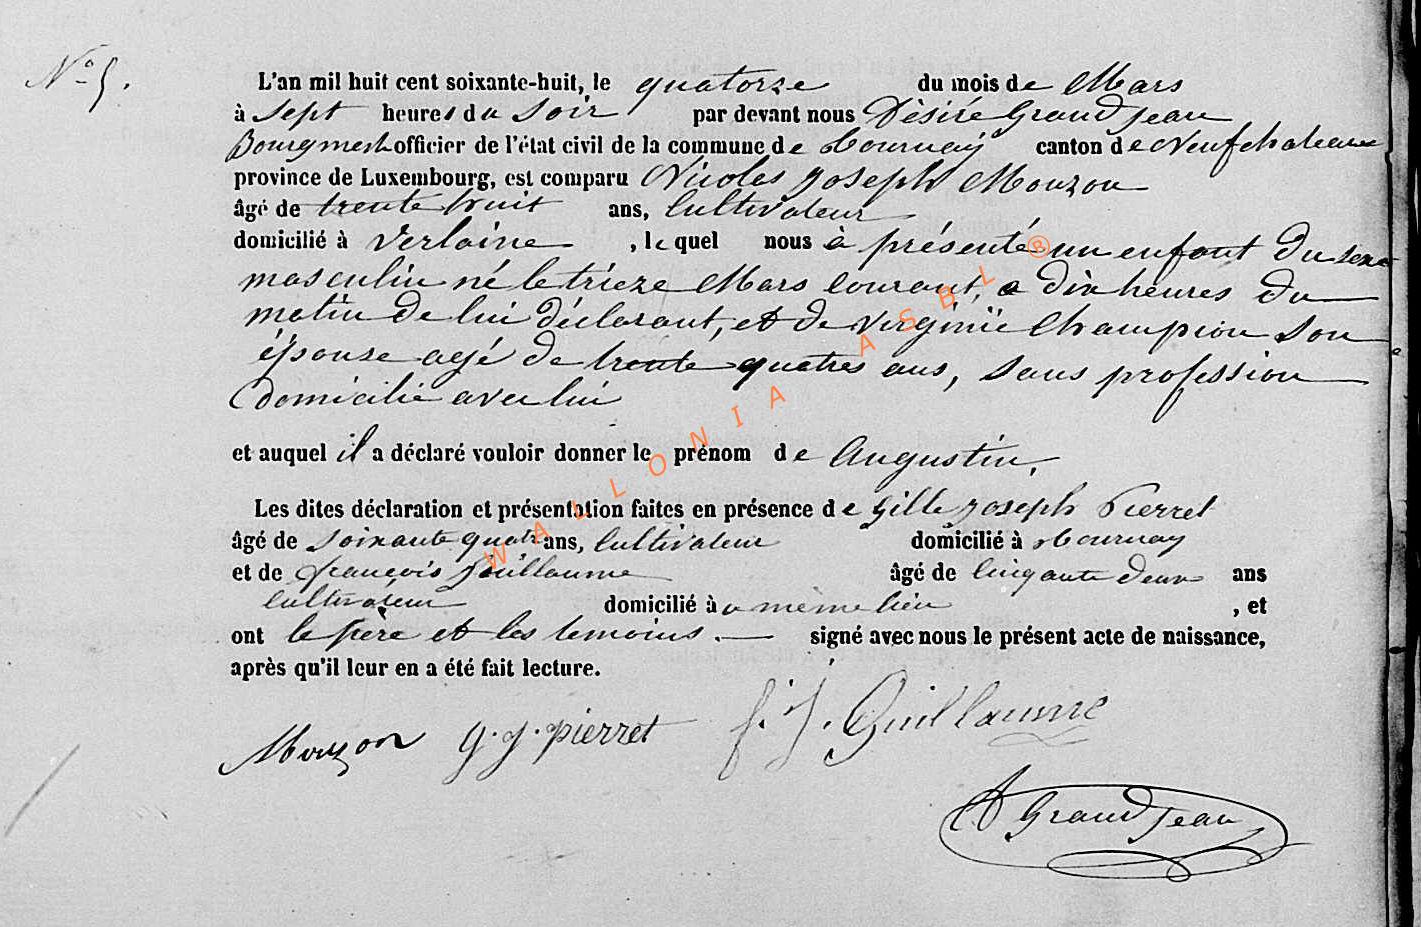 N° 5.
L'an mil huit cent soixante-huit, le quatorze du mois de Mars
à sept heures du soir par devant nous Désiré Grandjean
Bourgmestre officier de l'état civil de la commune de Tournay canton de Neufchateau
province de Luxembourg, est comparu Nicolas Joseph Mouzon
âgé de trente huit ans, Cultivateur
domicilié à Verlaine , lequel nous à présenté un enfant du sexe
masculin né le trieze Mars courant, a dix heures du
matin de lui déclarant, et de Virginie Champion son
épouse agé de trente quatres ans, sans profession
domicilié avec lui
et auquel il a déclaré vouloir donner le prénom de Augustin.
Les dites déclaration et présentation faites en présence de Gille Joseph Pierret
âgé de soixante quatre ans, Cultivateur domicilié à Tournay
et de François Guillaume âgé de cinqante deux ans
Cultivateur domicilié à u même lieu , et
ont le père et les temoins. signé avec nous le présent acte de naissance,
après qu'il leur en a été fait lecture.
Mouzon g. j. pierret f. J. Guillaume
D Grandjean
WALLONIA ASBL ®